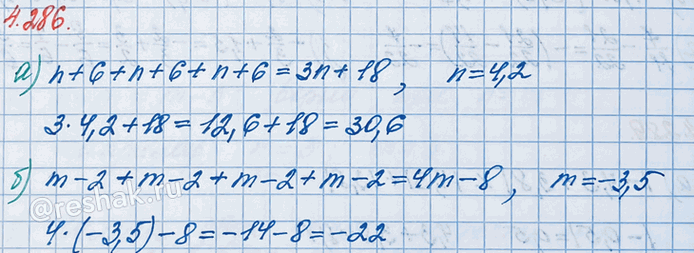 4.286.
а) n+6+n+6+n+6=3n+18, n=4,2
3·4,2+18=12,6+18=30,6
б) m-2+m-2+m-2+m-2=4m-8, m=-3,5
@reshak.ru
4·(-3,5)-8=-14-8=-22